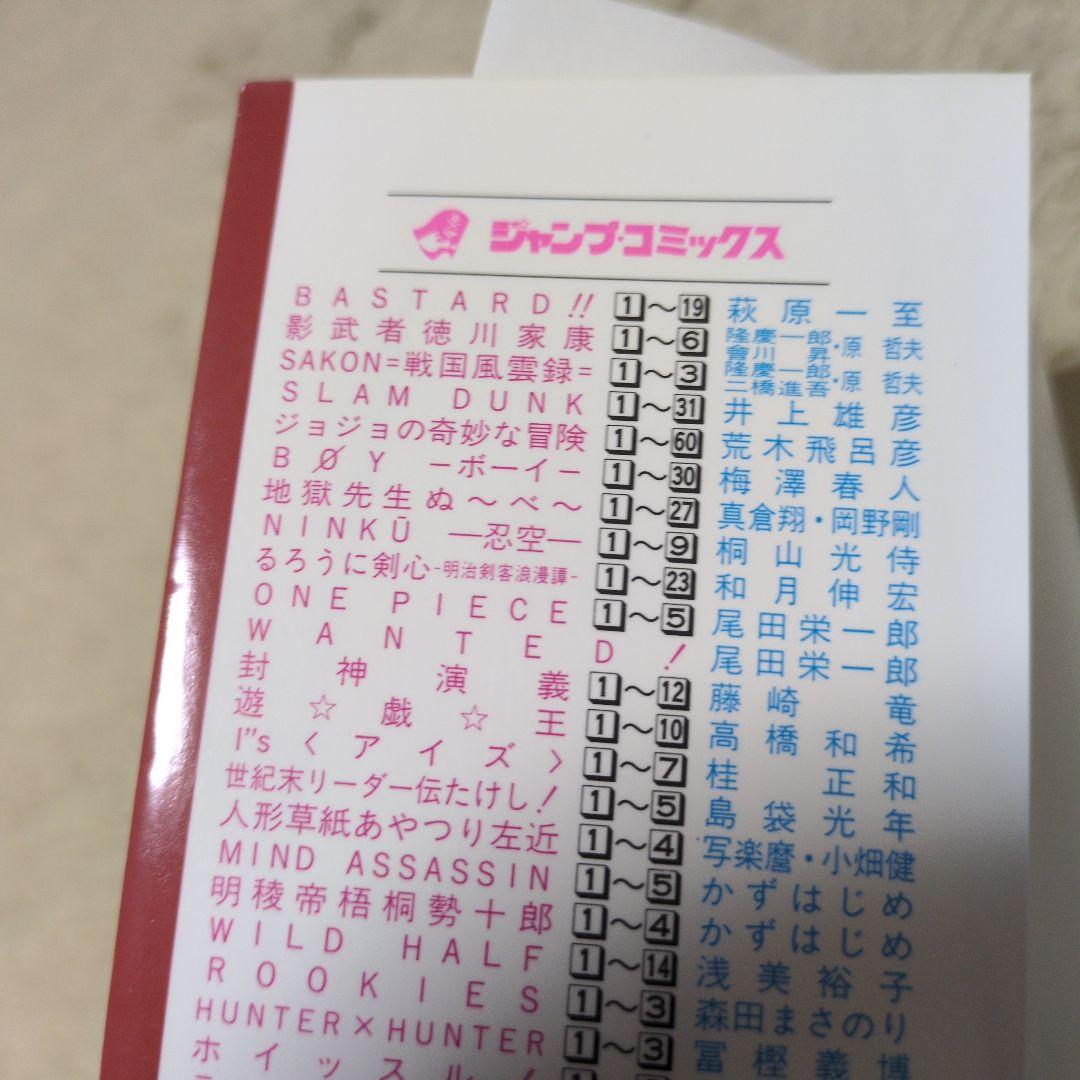 ジャンプ・コミックス
BASTARD!! 1〜19 萩原一至
影武者徳川家康 1〜6 隆慶一郎・會川昇・原哲夫
SAKON=戦国風雲録= 1〜3 隆慶一郎・二橋進吾・原哲夫
SLAM DUNK 1〜31 井上雄彦
ジョジョの奇妙な冒険 1〜60 荒木飛呂彦
BØY －ボーイ－ 1〜30 梅澤春人
地獄先生ぬ〜べ〜 1〜27 真倉翔・岡野剛
NINKŪ ―忍空― 1〜9 桐山光侍
るろうに剣心-明治剣客浪漫譚- 1〜23 和月伸宏
ONE PIECE 1〜5 尾田栄一郎
WANTED! 尾田栄一郎
封神演義 1〜12 藤崎竜
遊☆戯☆王 1〜10 高橋和希
I"s〈アイズ〉 1〜7 桂正和
世紀末リーダー伝たけし! 1〜5 島袋光年
人形草紙あやつり左近 1〜4 写楽麿・小畑健
MIND ASSASSIN 1〜5 かずはじめ
明稜帝梧桐勢十郎 1〜4 かずはじめ
WILD HALF 1〜14 浅美裕子
ROOKIES 1〜3 森田まさのり
HUNTER×HUNTER 1〜3 冨樫義博
ホイッスル!